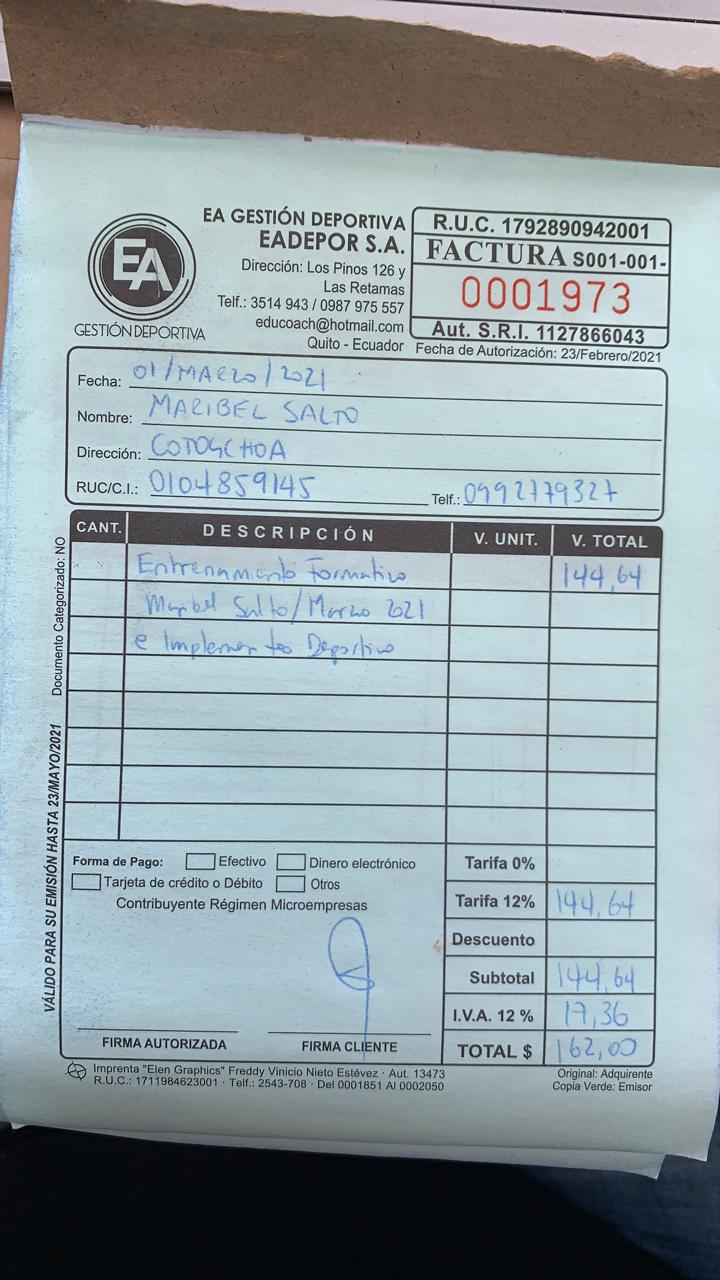 EA
GESTIÓN DEPORTIVA
EA GESTIÓN DEPORTIVA
EADEPOR S.A.
Dirección: Los Pinos 126 y
Las Retamas
Telf.: 3514 943 / 0987 975 557
educoach@hotmail.com
Quito - Ecuador
R.U.C. 1792890942001
FACTURA S001-001-
0001973
Aut. S.R.I. 1127866043
Fecha de Autorización: 23/Febrero/2021
Fecha: 01/MARZO/2021
Nombre: MARIBEL SALTO
Dirección: COTOGCHOA
RUC/C.I.: 0104859145 Telf.: 0992779327
CANT. DESCRIPCIÓN V. UNIT. V. TOTAL
Entrenamiento Formativo 144,64
Maribel Salto/Marzo 2021
e Implementos Deportivo
Documento Categorizado: NO
VÁLIDO PARA SU EMISIÓN HASTA 23/MAYO/2021
Forma de Pago: Efectivo Dinero electrónico
Tarjeta de crédito o Débito Otros
Contribuyente Régimen Microempresas
Tarifa 0%
Tarifa 12% 144,64
Descuento
Subtotal 144,64
I.V.A. 12 % 17,36
TOTAL $ 162,00
FIRMA AUTORIZADA FIRMA CLIENTE
Imprenta "Elen Graphics" Freddy Vinicio Nieto Estévez · Aut. 13473
R.U.C.: 1711984623001 · Telf.: 2543-708 · Del 0001851 Al 0002050
Original: Adquirente
Copia Verde: Emisor